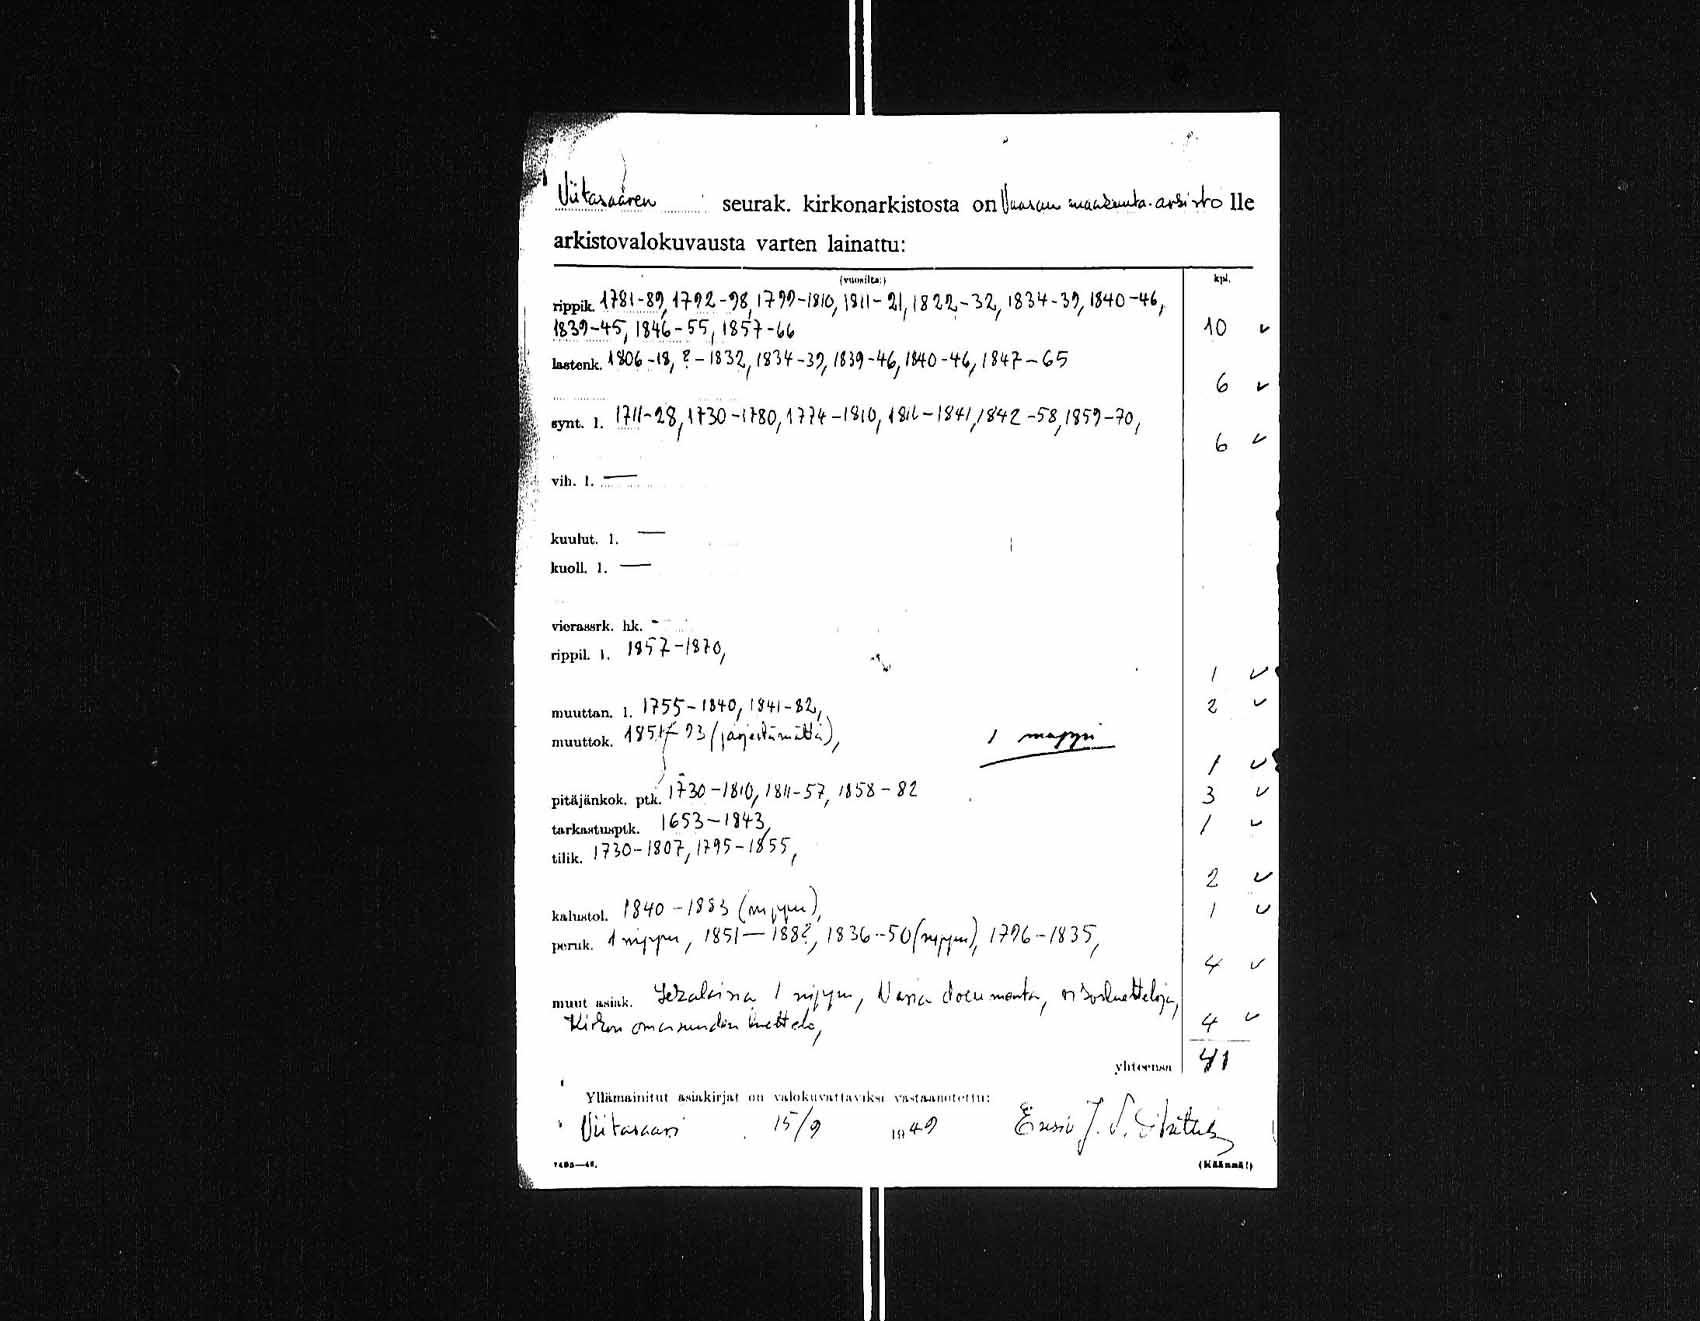 Viitasaaren seurak. kirkonarkistosta on Vaasan maakunta-arkisto lle
arkistovalokuvausta varten lainattu:
(vuosilta:) kpl.
rippik. 1781-89, 1792-98, 1799-1810, 1811-21, 1822-32, 1834-39, 1840-46,
1839-45, 1846-55, 1857-66 10 ✓
lastenk. 1806-18, ?-1832, 1834-39, 1839-46, 1840-46, 1847-65
6 ✓
synt. l. 1711-28, 1730-1780, 1774-1810, 1811-1841, 1842-58, 1859-70,
6 ✓
vih. l. —
kuulut. l. —
kuoll. l. —
vierassrk. hk. -
rippil. l. 1857-1870,
1 ✓
muuttan. l. 1755-1840, 1841-82, 2 ✓
muuttok. (järjestämättä), 1 mappi
1 ✓
pitäjänkok. ptk. 1730-1810, 1811-57, 1858-82 3 ✓
tarkastusptk. 1653-1843, 1 ✓
tilik. 1730-1807, 1795-1855,
2 ✓
kalustol. 1840-1883 (nippu), 1 ✓
peruk. 1 nippu, 1851-188?, 1836-50 (nippu), 1796-1835,
4 ✓
muut asiak. Sekalaisia 1 nippu, Varia documenta,
Kirkon omaisuuden luettelo, 4 ✓
yhteensä 41
Yllämainitut asiakirjat on valokuvattaviksi vastaanotettu:
Viitasaari 15/9 1949
7493—48. (Käännä!)